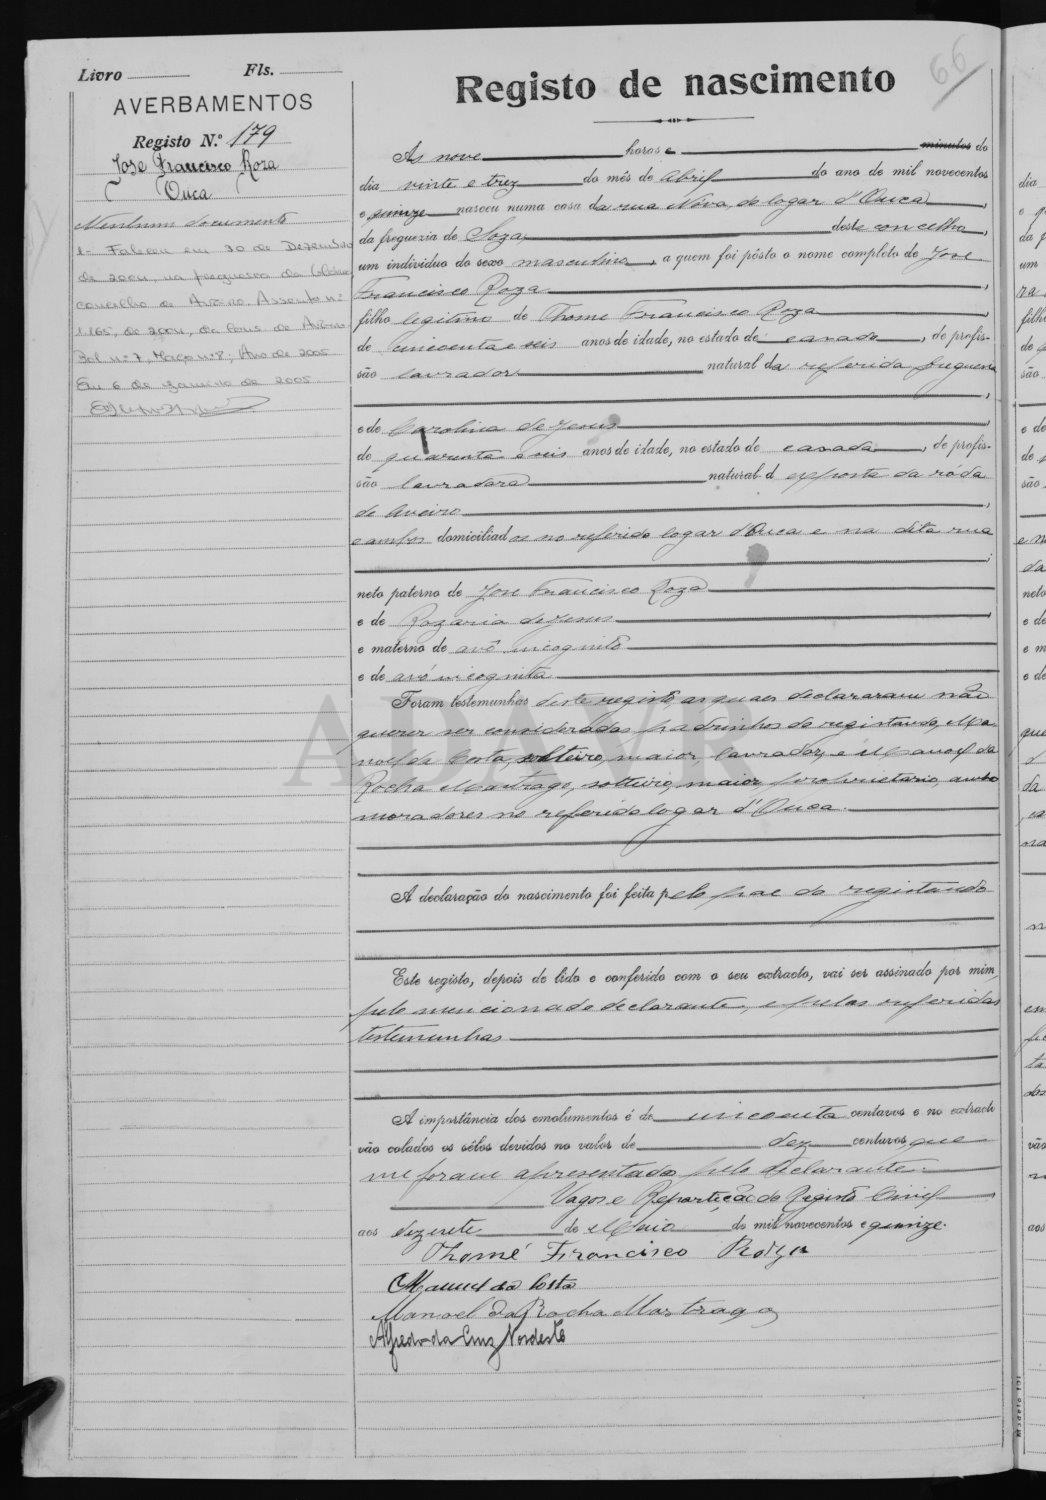 Livro Fls.
AVERBAMENTOS
Registo N.º 179
Jose Francisco Roza
Ouca
Nenhum documento
1- Faleceu em 30 de Dezembro
de 2004, na freguesia da Glória
concelho de Aveiro. Assento nº
1165, de 2004, da Cons. de Aveiro
Fol. nº 7, Maço nº 8; Ano de 2005
Em 6 de Janeiro de 2005
66
Registo de nascimento
Às nove horas e minutos do
dia vinte e trez do mês de Abril do ano de mil novecentos
e quinze nasceu numa casa da rua Nova, do logar d'Ouca,
da freguezia de Soza deste concelho,
um individuo do sexo masculino, a quem foi pôsto o nome completo de José
Francisco Roza,
filho legitimo de Thomé Francisco Roza,
de cincoenta e seis anos de idade, no estado de casado, de profis-
são lavrador natural da referida freguesia,
e de Carolina de Jesus,
de quarenta e seis anos de idade, no estado de casada, de profis-
são lavradora natural d exposta da róda
de Aveiro,
e ambos domiciliados no referido logar d'Ouca e na dita rua;
neto paterno de José Francisco Roza
e de Rozaria de Jesus,
e materno de avô incognito
e de avó incognita
Foram testemunhas deste registo, as quaes declararam não
querer ser consideradas padrinhos do registando, Ma-
noel da Costa, solteiro, maior, lavrador, e Manoel da
Rocha Martrago, solteiro, maior, proprietario, ambos
moradores no referido logar d'Ouca.
A declaração do nascimento foi feita pelo pae do registando
Este registo, depois de lido e conferido com o seu extracto, vai ser assinado por mim,
pelo mencionado declarante, e pelas referidas
testemunhas
A importância dos emolumentos é de cincoenta centavos e no extracto
vão colados os sêlos devidos no valor de dez centavos que
me foram apresentados pelo declarante.
Vagos e Repartição do Registo Civil,
aos dezesete de Maio de mil novecentos e quinze.
Thomé Francisco Rodza
Manuel da Costa
Manoel da Rocha Martrago
Alfredo da Cruz Nordeste
ADAVR